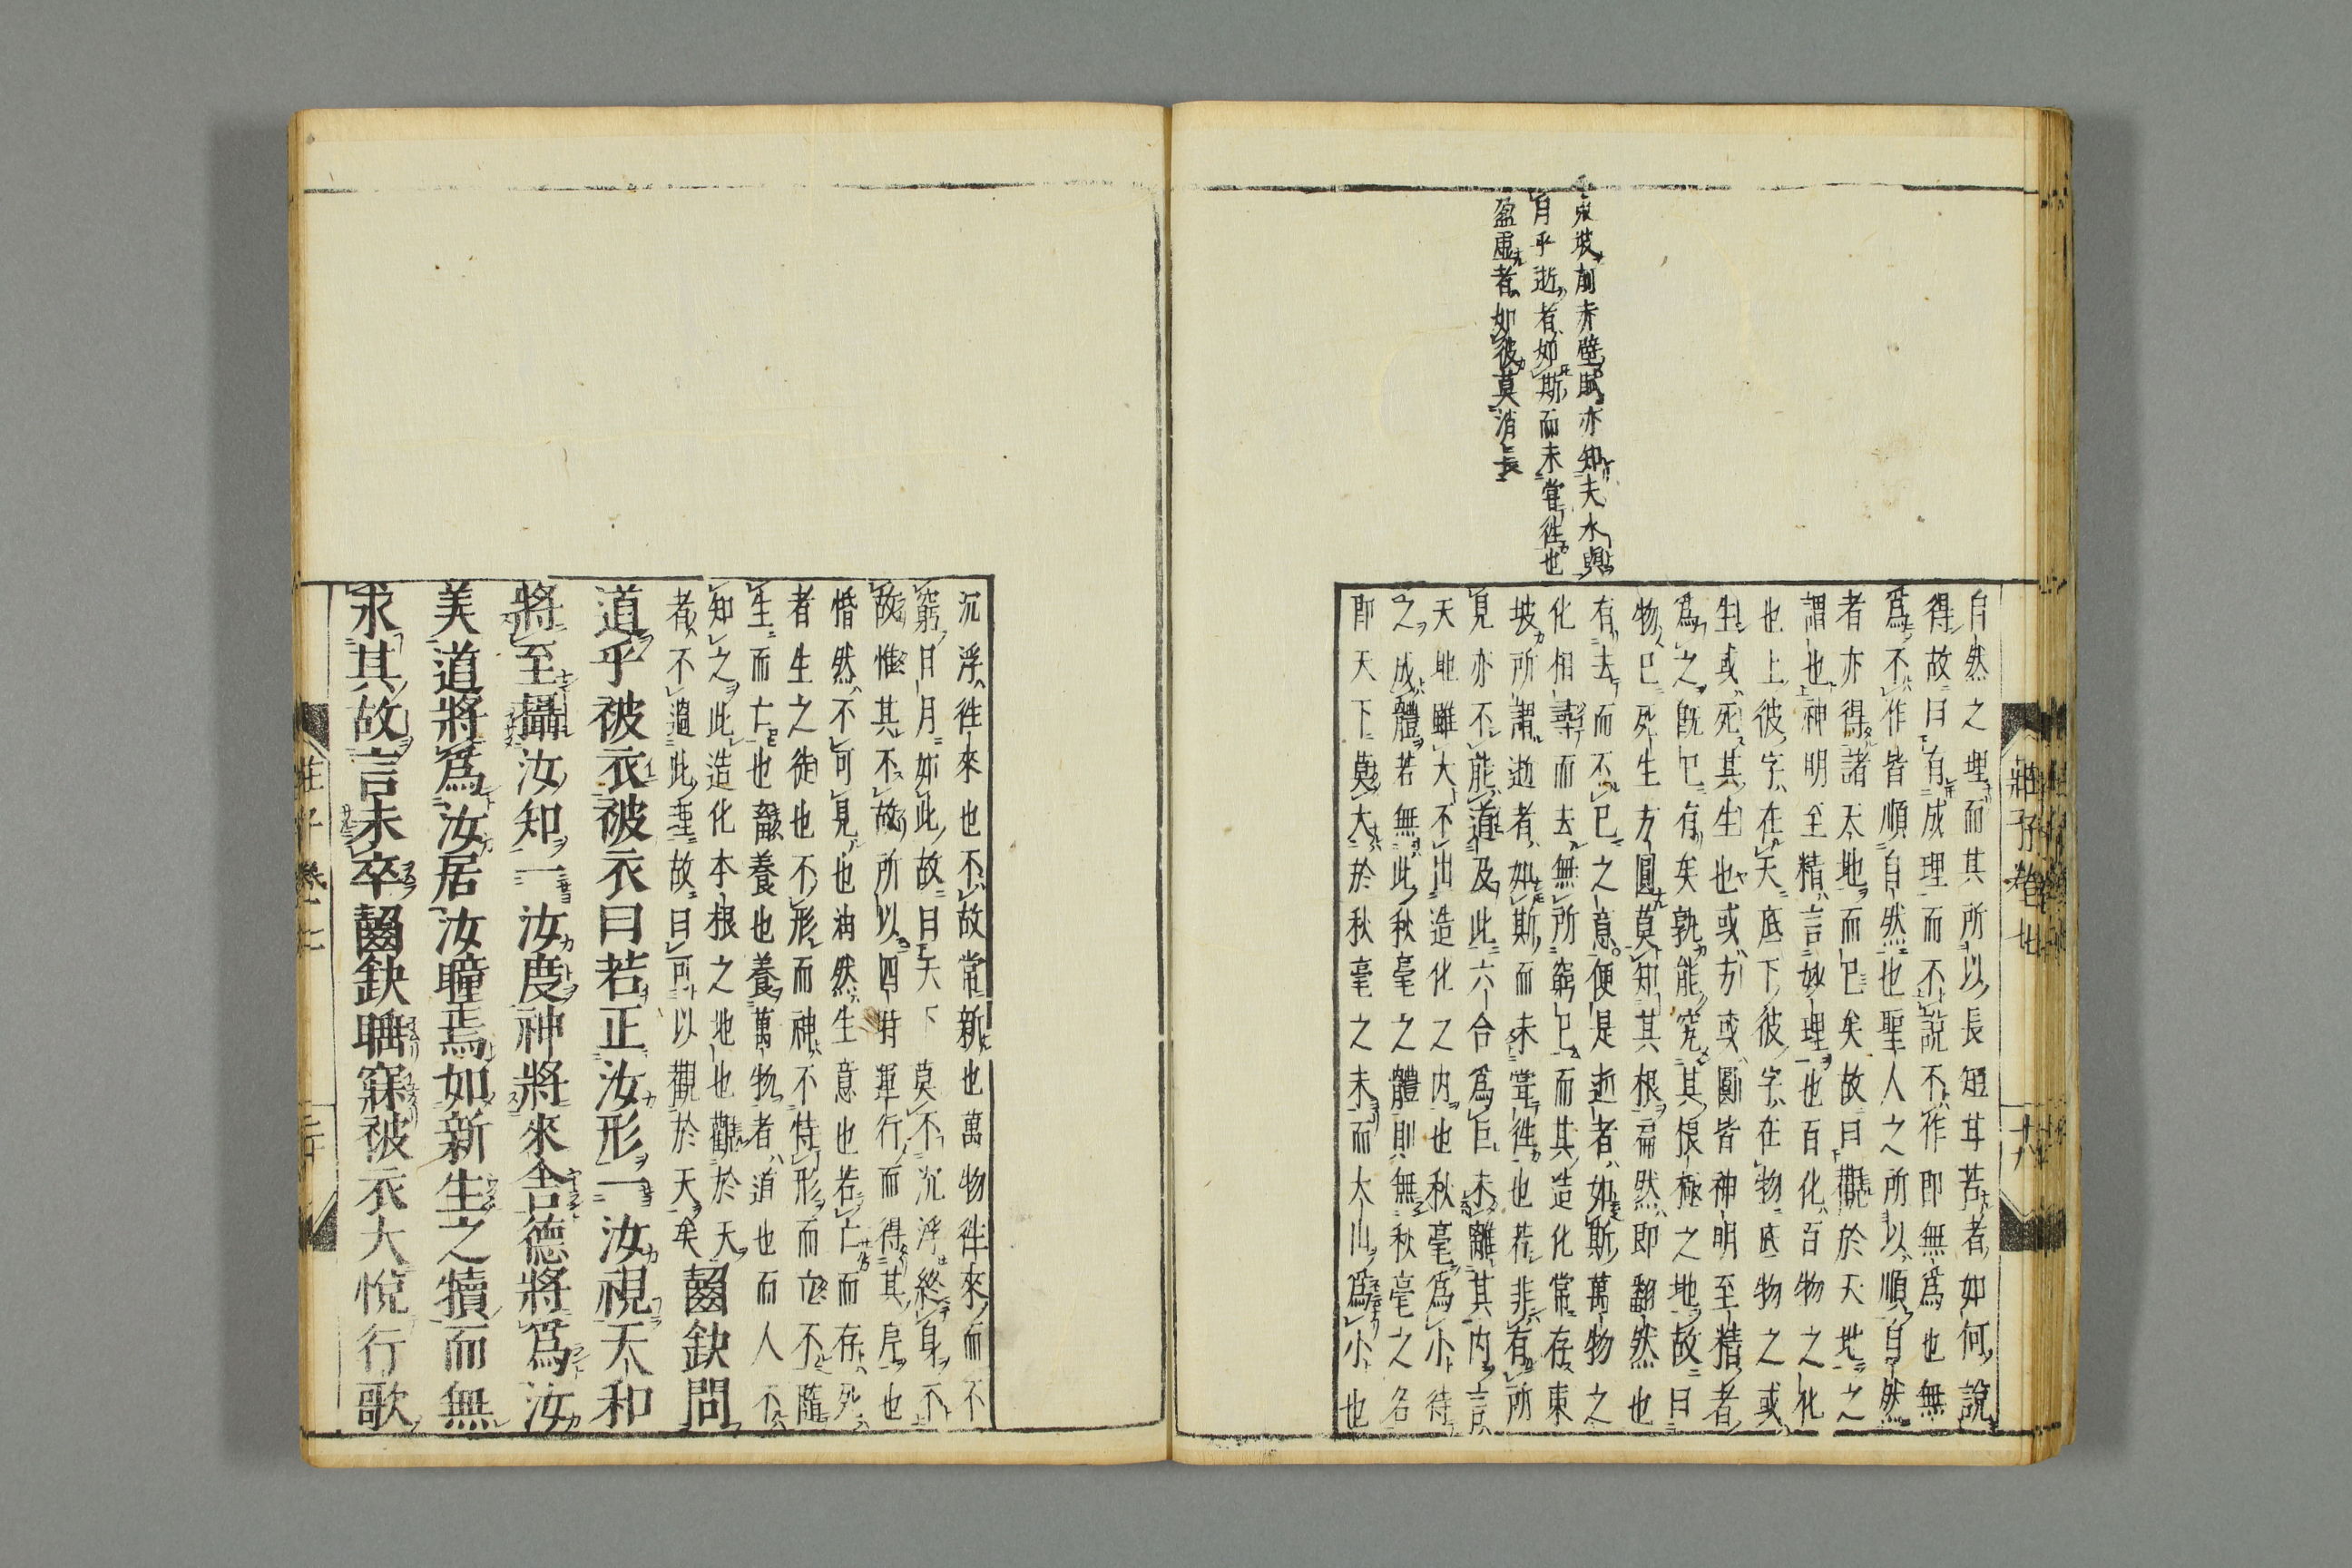 東坡前赤壁賦亦知夫水與
月乎逝者如斯而未嘗徃也
盈虛者如彼莫消長
自然之理而其所以長短其苦者如何說
得故曰有成理而不說不作即無爲也無
爲不作皆順自然也聖人之所以順自然
者亦得諸天地而已矣故曰觀於天地之
謂也神明至精言妙理也百化百物之化
也上彼字在天底下彼字在物底物之或
生或死其生也或方或圓皆神明至精者
爲之旣已有矣孰能究其根極之地故曰
物已死生方圓莫知其根扁然即翻然也
有去而不已之意便是逝者如斯萬物之
化相尋而去無所窮已而其造化常存東
坡所謂逝者如斯而未嘗徃也若非有所
見亦不能道及此六合爲巨未離其内言
天地雖大不出造化之内也秋毫爲小待
之成體若無此秋毫之體則無秋毫之名
即天下莫大於秋毫之末而太山爲小也
莊子卷七
十九
沉浮徃來也不故常新也萬物徃來而不
窮日月如此故曰天下莫不沉浮終身不
故惟其不故所以四時運行而得其序也
惛然不可見也油然生意也若亡而存死
者生之徒也不形而神不恃形而立不隨
生而亡也畜養也養萬物者道也而人不
知之此造化本根之地也觀於天
者不過此理故曰可以觀於天矣齧缺問
道乎被衣被衣曰若正汝形一汝視天和
將至攝汝知一汝度神將來舍德將爲汝
美道將爲汝居汝瞳焉如新生之犢而無
求其故言未卒齧缺睡寐被衣大悅行歌
莊子卷七
二十